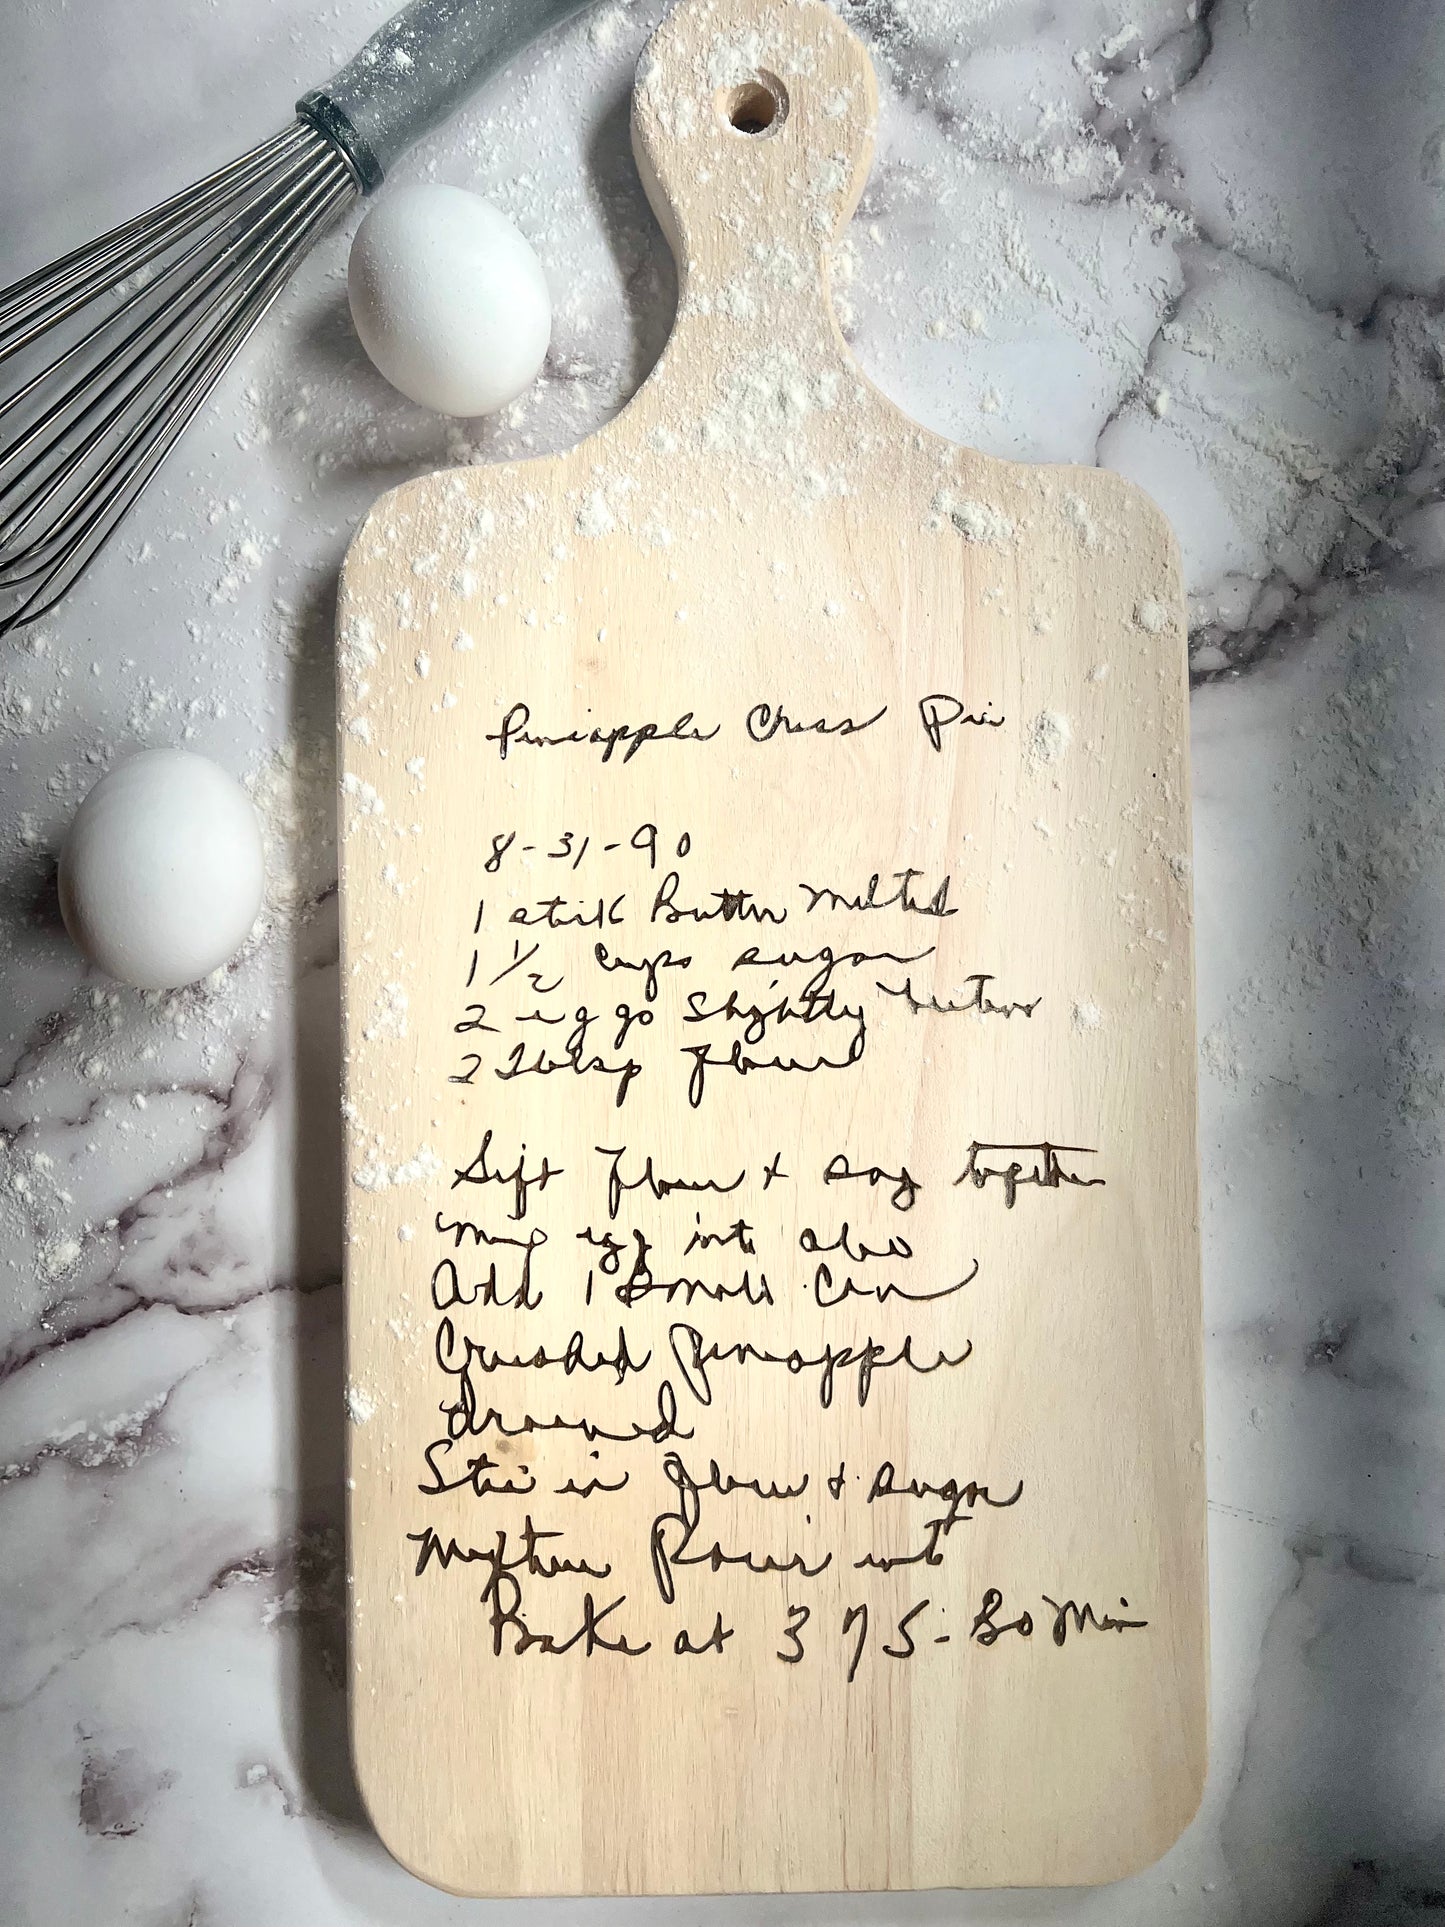 Pineapple Chess Pie
8-31-90
1 stick Butter Melted
1 1/2 Cups sugar
2 eggs Slightly beaten
2 Tablsp flour
Sift flour + sug together
egg into also
Add 1 Small Can
Crushed Pineapple
drained
Stir in flour & sugar
Mixture Pour into
Bake at 375 - 30 Min